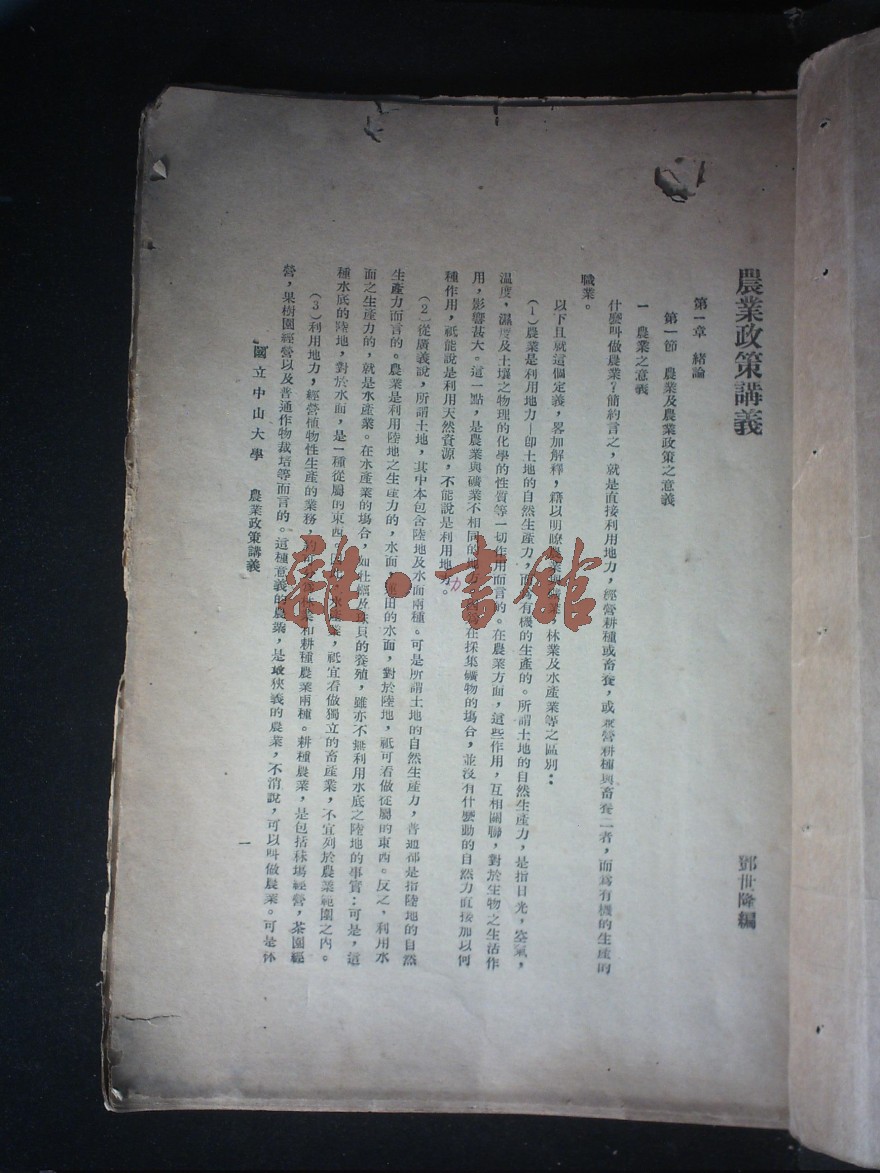 農業政策講義
鄧世隆編
第一章　緒論
第一節　農業及農業政策之意義
一　農業之意義
什麼叫做農業？簡約言之，就是直接利用地力，經營耕種或畜養，或兼營耕種與畜養二者，而為有機的生產的
職業。
以下且就這個定義，畧加解釋，藉以明瞭農業與礦業，林業及水產業等之區別：
（1）農業是利用地力—卽土地的自然生產力，而為有機的生產的。所謂土地的自然生產力，是指日光，空氣，
溫度，濕度及土壤之物理的化學的性質等一切作用而言的。在農業方面，這些作用，互相關聯，對於生物之生活作
用，影響甚大。這一點，是農業與礦業不相同的地方，因為在採集礦物的場合，並沒有什麼動的自然力直接加以何
種作用，祇能說是利用天然資源，不能說是利用地力。
（2）從廣義說，所謂土地，其中本包含陸地及水面兩種。可是所謂土地的自然生產力，普通都是指陸地的自然
生產力而言的。農業是利用陸地之生產力的，水面，田的水面，對於陸地，祇可看做從屬的東西。反之，利用水
面之生產力的，就是水產業。在水產業的場合，如牡蠣及珠貝的養殖，雖亦不無利用水底之陸地的事實；可是，這
種水底的陸地，對於水面，是一種從屬的東西。因此，水產業，祇宜看做獨立的畜產業，不宜列於農業範圍之內。
（3）利用地力，經營植物性生產的業務，約可分林業和耕種農業兩種。耕種農業，是包括秣場經營，茶園經
營，果樹園經營以及普通作物栽培等而言的。這種意義的農業，是最狹義的農業，不消說，可以叫做農業。可是林
國立中山大學　農業政策講義
一
雜·書館